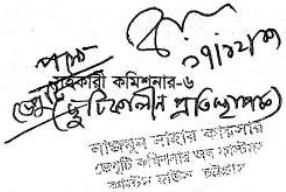 পক্ষে
সহকারী কমিশনার-৬
(ছুটিকালীন প্রতিস্থাপক)
নাজমুন নাহার কায়সার
ডেপুটি কমিশনার অব কাস্টমস
কাস্টম হাউস, চট্টগ্রাম